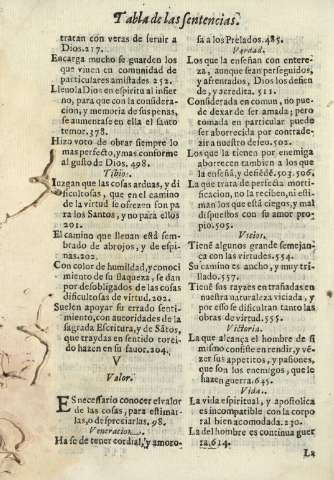 Tabla de las sentencias.
tratan con veras de seruir a
Dios. 217.
Encarga mucho se guarden los
que viuen en comunidad de
particulares amistades. 252.
Lleno la Dios en espiritu al infier
no, para que con la consideraci
on, y memoria de sus penas,
se aumentase en ella el santo
temor. 378.
Hizo voto de obrar siempre lo
mas perfecto, y mas conforme
al gusto de Dios. 498.
Tibios.
Iuzgan que las cosas arduas, y di
ficultosas, que en el camino
de la virtud se ofrezen son pa
ra los Santos, y no para ellos
201.
El camino que lleuan està sem
brado de abrojos, y de espi-
nas. 202.
Con color de humildad, y conoci
miento de su flaqueza, se dan
por desobligados de las cosas
dificultosas de virtud. 202.
Suelen apoyar su errado senti-
miento, con autoridades de la
sagrada Escritura, y de Sãtos,
que traydas en sentido torci
do hazen en su fauor. 204.
V
Valor.
ES necesario conocer el valor
de las cosas, para estimar
las, o depreciarlas. 98.
Veneracion.
Ha se de tener cordial, y amoro-
sa a los Prelados. 485.
Verdad.
Los que la enseñan con entere-
za, aunque sean perseguidos,
y afrentados, Dios los defien
de, y acredita. 511.
Considerada en comun, no pue-
de dexar de ser amada; pero
tomada en particular puede
ser aborrecida por contrade-
zir a nuestro deseo. 502.
Los que la tienen por enemiga
aborrecen tambien a los que
la enseña, y defiẽdẽ. 503. 506.
La que trata de perfecta morti-
ficacion, no la reciben, ni esti-
man los que està ciegos, y mal
dispuestos con su amor pro-
pio. 505.
Vicios.
Tienẽ algunos grande semejan-
ça con las virtudes. 554.
Su camino es ancho, y muy tri-
llado. 557.
Tienẽ sus rayzes en trañadas en
nuestra naturaleza viciada, y
por eso se dificultan tanto las
obras de virtud. 555.
Victoria.
La que alcança el hombre de si
mismo consiste en rendir, y vẽ-
zer sus appetitos, y pasiones,
que son los enemigos, que le
hazen guerra. 645.
Vida.
La vida espiritual, y apostolica
es incompatible con la corpo
ral bien acomodada. 230.
La del hombre es continua guer
ra. 614.
La